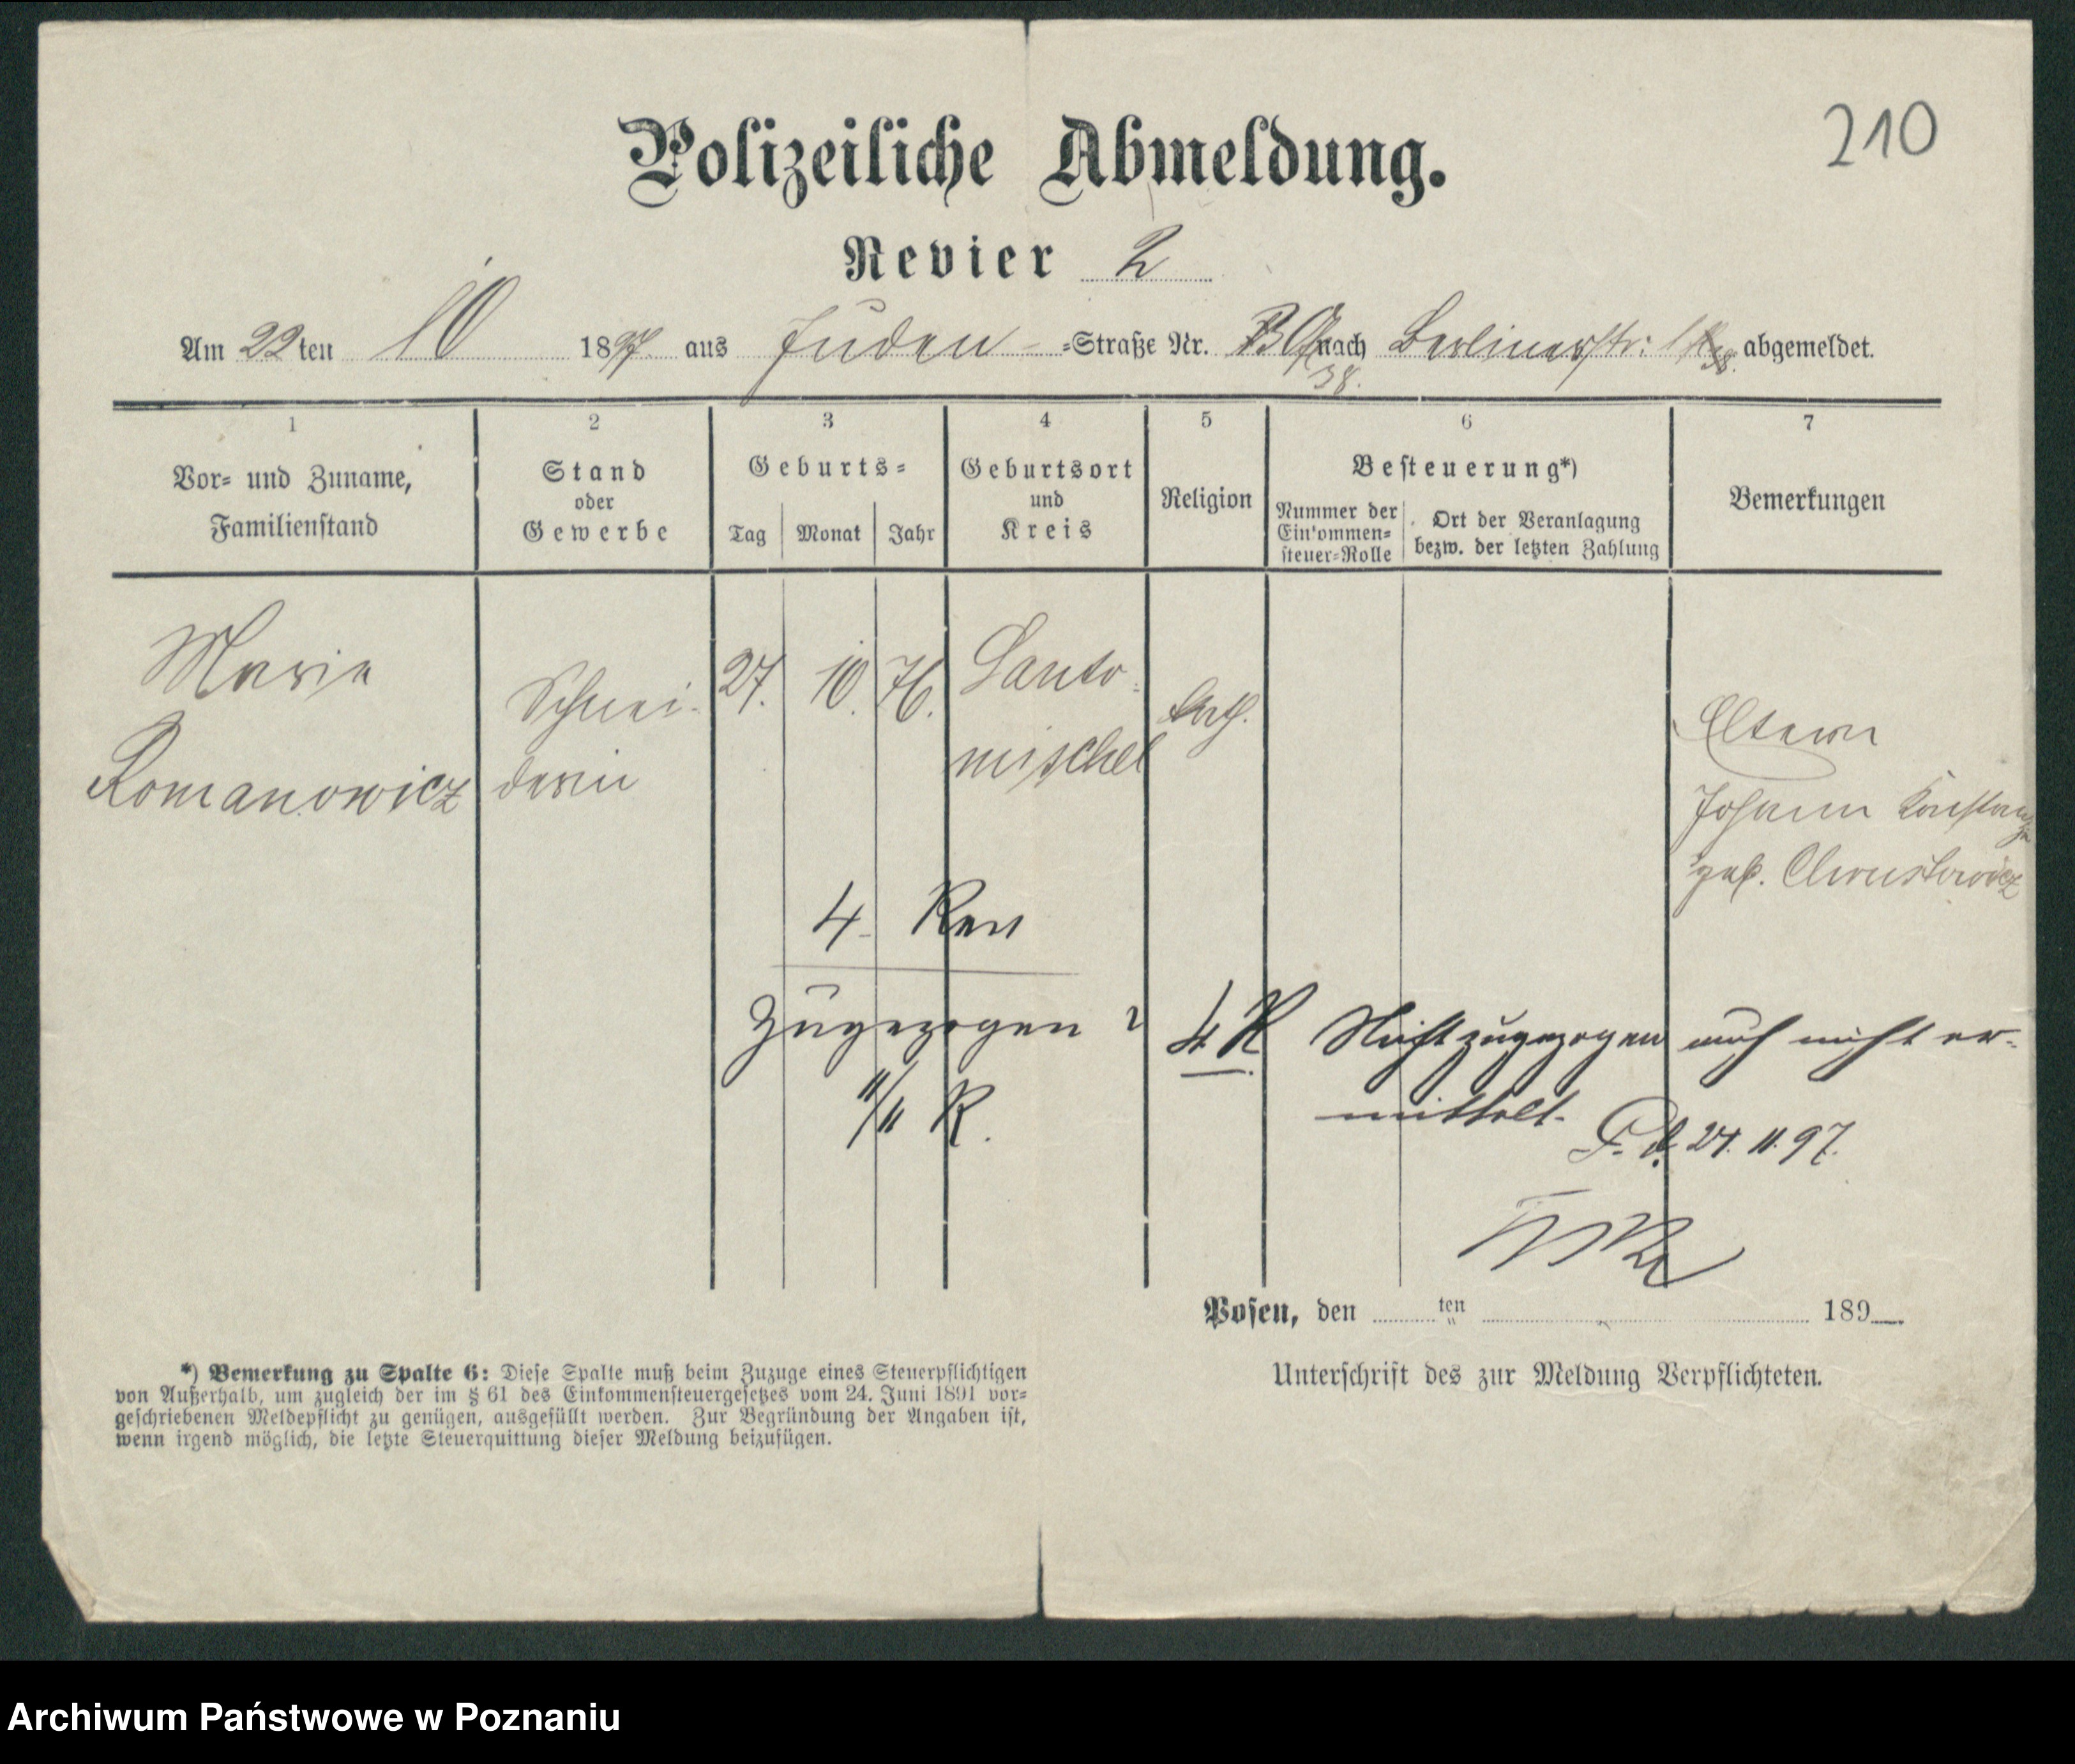 210
Polizeiliche Abmeldung.
Revier 2
Am 22ten 10 1897 aus Juden-Straße Nr. nach Berlinerstr: abgemeldet.
38.
1 2 3 4 5 6 7
Vor- und Zuname,
Familienstand
Stand
oder
Gewerbe
Geburts-
Tag Monat Jahr
Geburtsort
und
Kreis
Religion
Besteuerung*)
Nummer der
Einkommen-
steuer-Rolle
Ort der Veranlagung
bezw. der letzten Zahlung
Bemerkungen
Marie
Romanowicz
Schnei-
derin
27. 10. 76.
Santo-
mischel
kath.
Eltern
Johann
geb.
4 Rev
Zugezogen ?
11/11 R.
4 R Nicht zugezogen auch nicht er-
mittelt.
P. d. 24. 11. 97.
Posen, den ten 189
Unterschrift des zur Meldung Verpflichteten.
*) Bemerkung zu Spalte 6: Diese Spalte muß beim Zuzuge eines Steuerpflichtigen
von Außerhalb, um zugleich der im § 61 des Einkommensteuergesetzes vom 24. Juni 1891 vor-
geschriebenen Meldepflicht zu genügen, ausgefüllt werden. Zur Begründung der Angaben ist,
wenn irgend möglich, die letzte Steuerquittung dieser Meldung beizufügen.
Archiwum Państwowe w Poznaniu